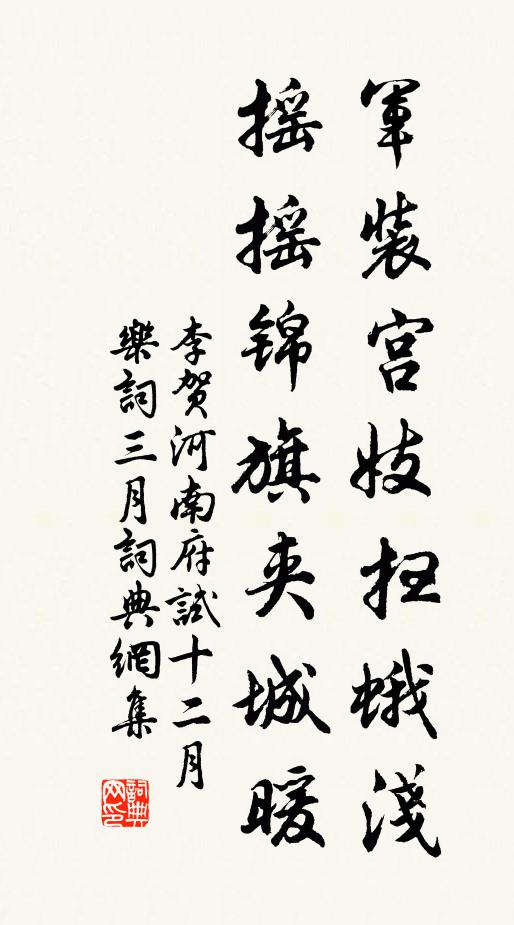 軍裝宮妓扫蛾淺
摇摇锦旗夹城暖
李贺河南府試十二月
樂詞三月詞典網集
詞典网印